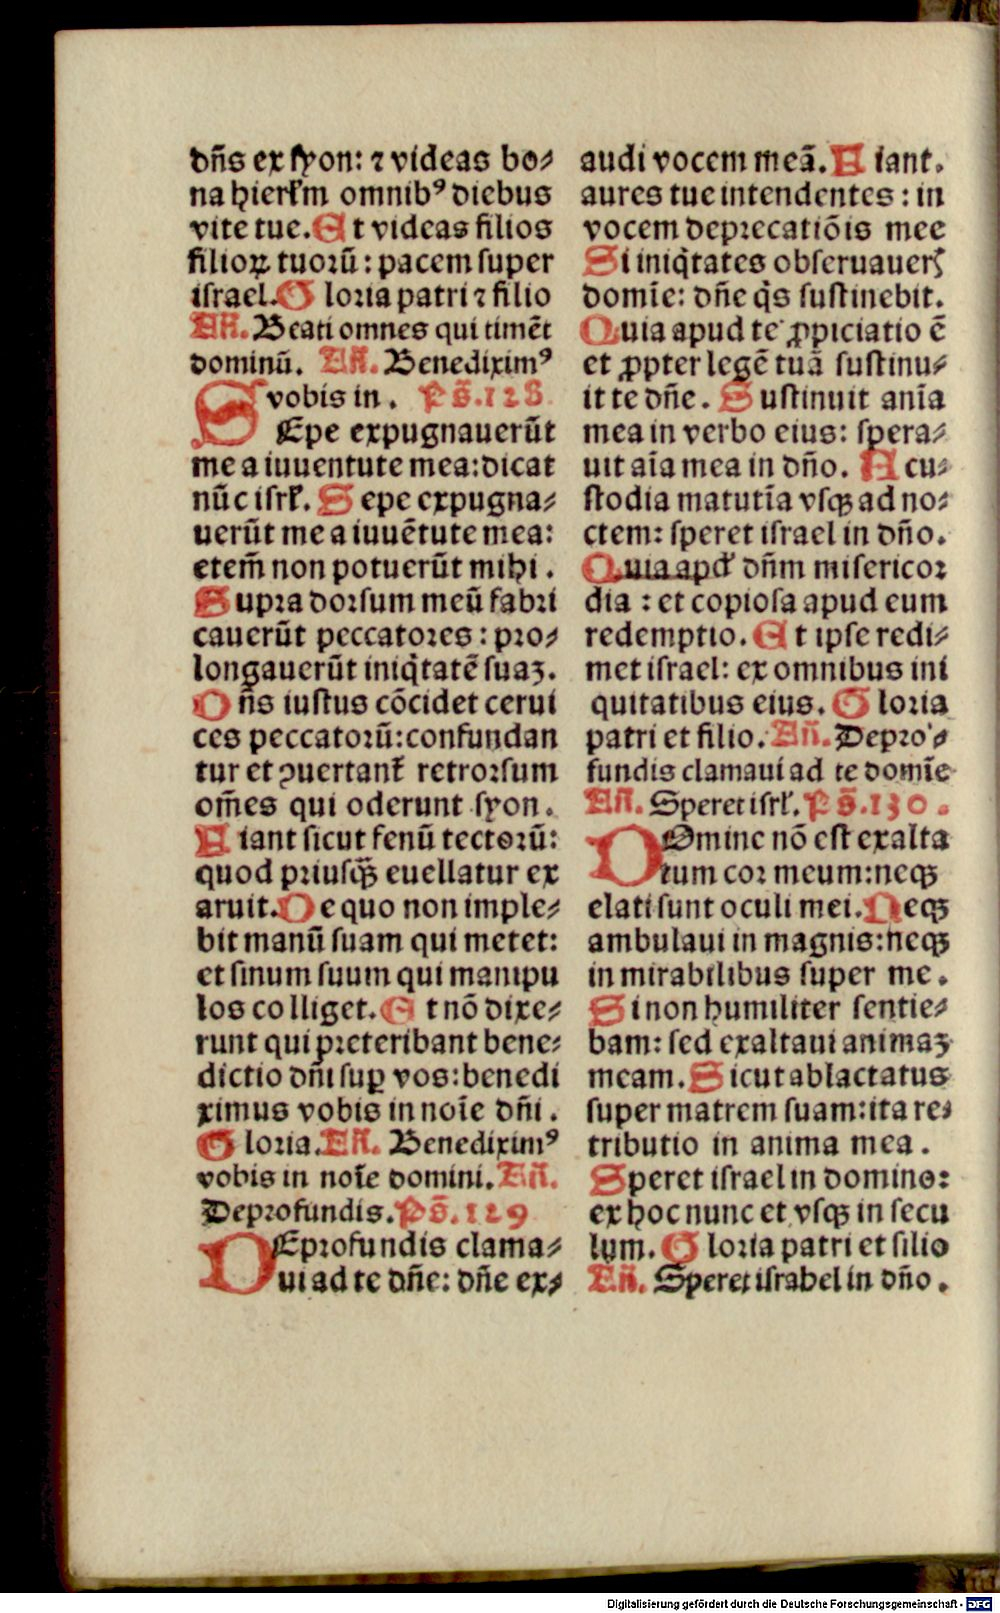 dñs ex syon: ⁊ videas bo⸗
na hierl̃m omnibꝰ diebus
vite tue. Et videas filios
filioꝝ tuoꝛũ: pacem super
israel. Gloꝛia patri ⁊ filio
Añ. Beati omnes qui timẽt
dominũ. Añ. Benediximꝰ
vobis in. Ps̃. 128.
SEpe expugnauerũt
me a iuuentute mea: dicat
nũc isrl̃. Sepe expugna⸗
uerũt me a iuuẽtute mea:
etem̃ non potuerũt mihi.
Supꝛa doꝛsum meũ fabꝛi
cauerũt peccatoꝛes: pꝛo⸗
longauerũt iniq̃tatẽ suaꝫ.
Dñs iustus cõcidet cerui
ces peccatoꝛũ: confundan
tur et ꝯuertant̃ retroꝛsum
om̃es qui oderunt syon.
Fiant sicut fenũ tectoꝛũ:
quod pꝛiusꝗ̃ꝫ euellatur ex
aruit. De quo non imple⸗
bit manũ suam qui metet:
et sinum suum qui manipu
los colliget. Et nõ dixe⸗
runt qui pꝛeteribant bene⸗
dictio dñi suꝑ vos: benedi
ximus vobis in noĩe dñi.
Gloꝛia. Añ. Benediximꝰ
vobis in noĩe domini. Añ.
De pꝛofundis. Ps̃. 129
DE pꝛofundis clama⸗
ui ad te dñe: dñe ex⸗
audi vocem meã. Fiant.
aures tue intendentes: in
vocem depꝛecatiõis mee
Si iniq̃tates obseruauerꝭ
domĩe: dñe q̃s sustinebit.
Quia apud te ꝓpiciatio ẽ
et ꝓpter legẽ tuã sustinu⸗
it te dñe. Sustinuit anĩa
mea in verbo eius: spera⸗
uit aĩa mea in dño. A cu⸗
stodia matutĩa vsqꝫ ad no⸗
ctem: speret israel in dño.
Quia apd̃ dñm misericoꝛ
dia: et copiosa apud eum
redemptio. Et ipse redi⸗
met israel: ex omnibus ini
quitatibus eius. Gloꝛia
patri et filio. Añ. De pꝛo⸗
fundis clamaui ad te domĩe
Añ. Speret isrl̃. Ps̃. 130.
DOmine nõ est exalta
tum coꝛ meum: neqꝫ
elati sunt oculi mei. Neqꝫ
ambulaui in magnis: neqꝫ
in mirabilibus super me.
Si non humiliter sentie⸗
bam: sed exaltaui animaꝫ
meam. Sicut ablactatus
super matrem suam: ita re⸗
tributio in anima mea.
Speret israel in domino:
ex hoc nunc et vsqꝫ in secu
lum. Gloꝛia patri et filio
Añ. Speret israhel in dño.
Digitalisierung gefördert durch die Deutsche Forschungsgemeinschaft - DFG